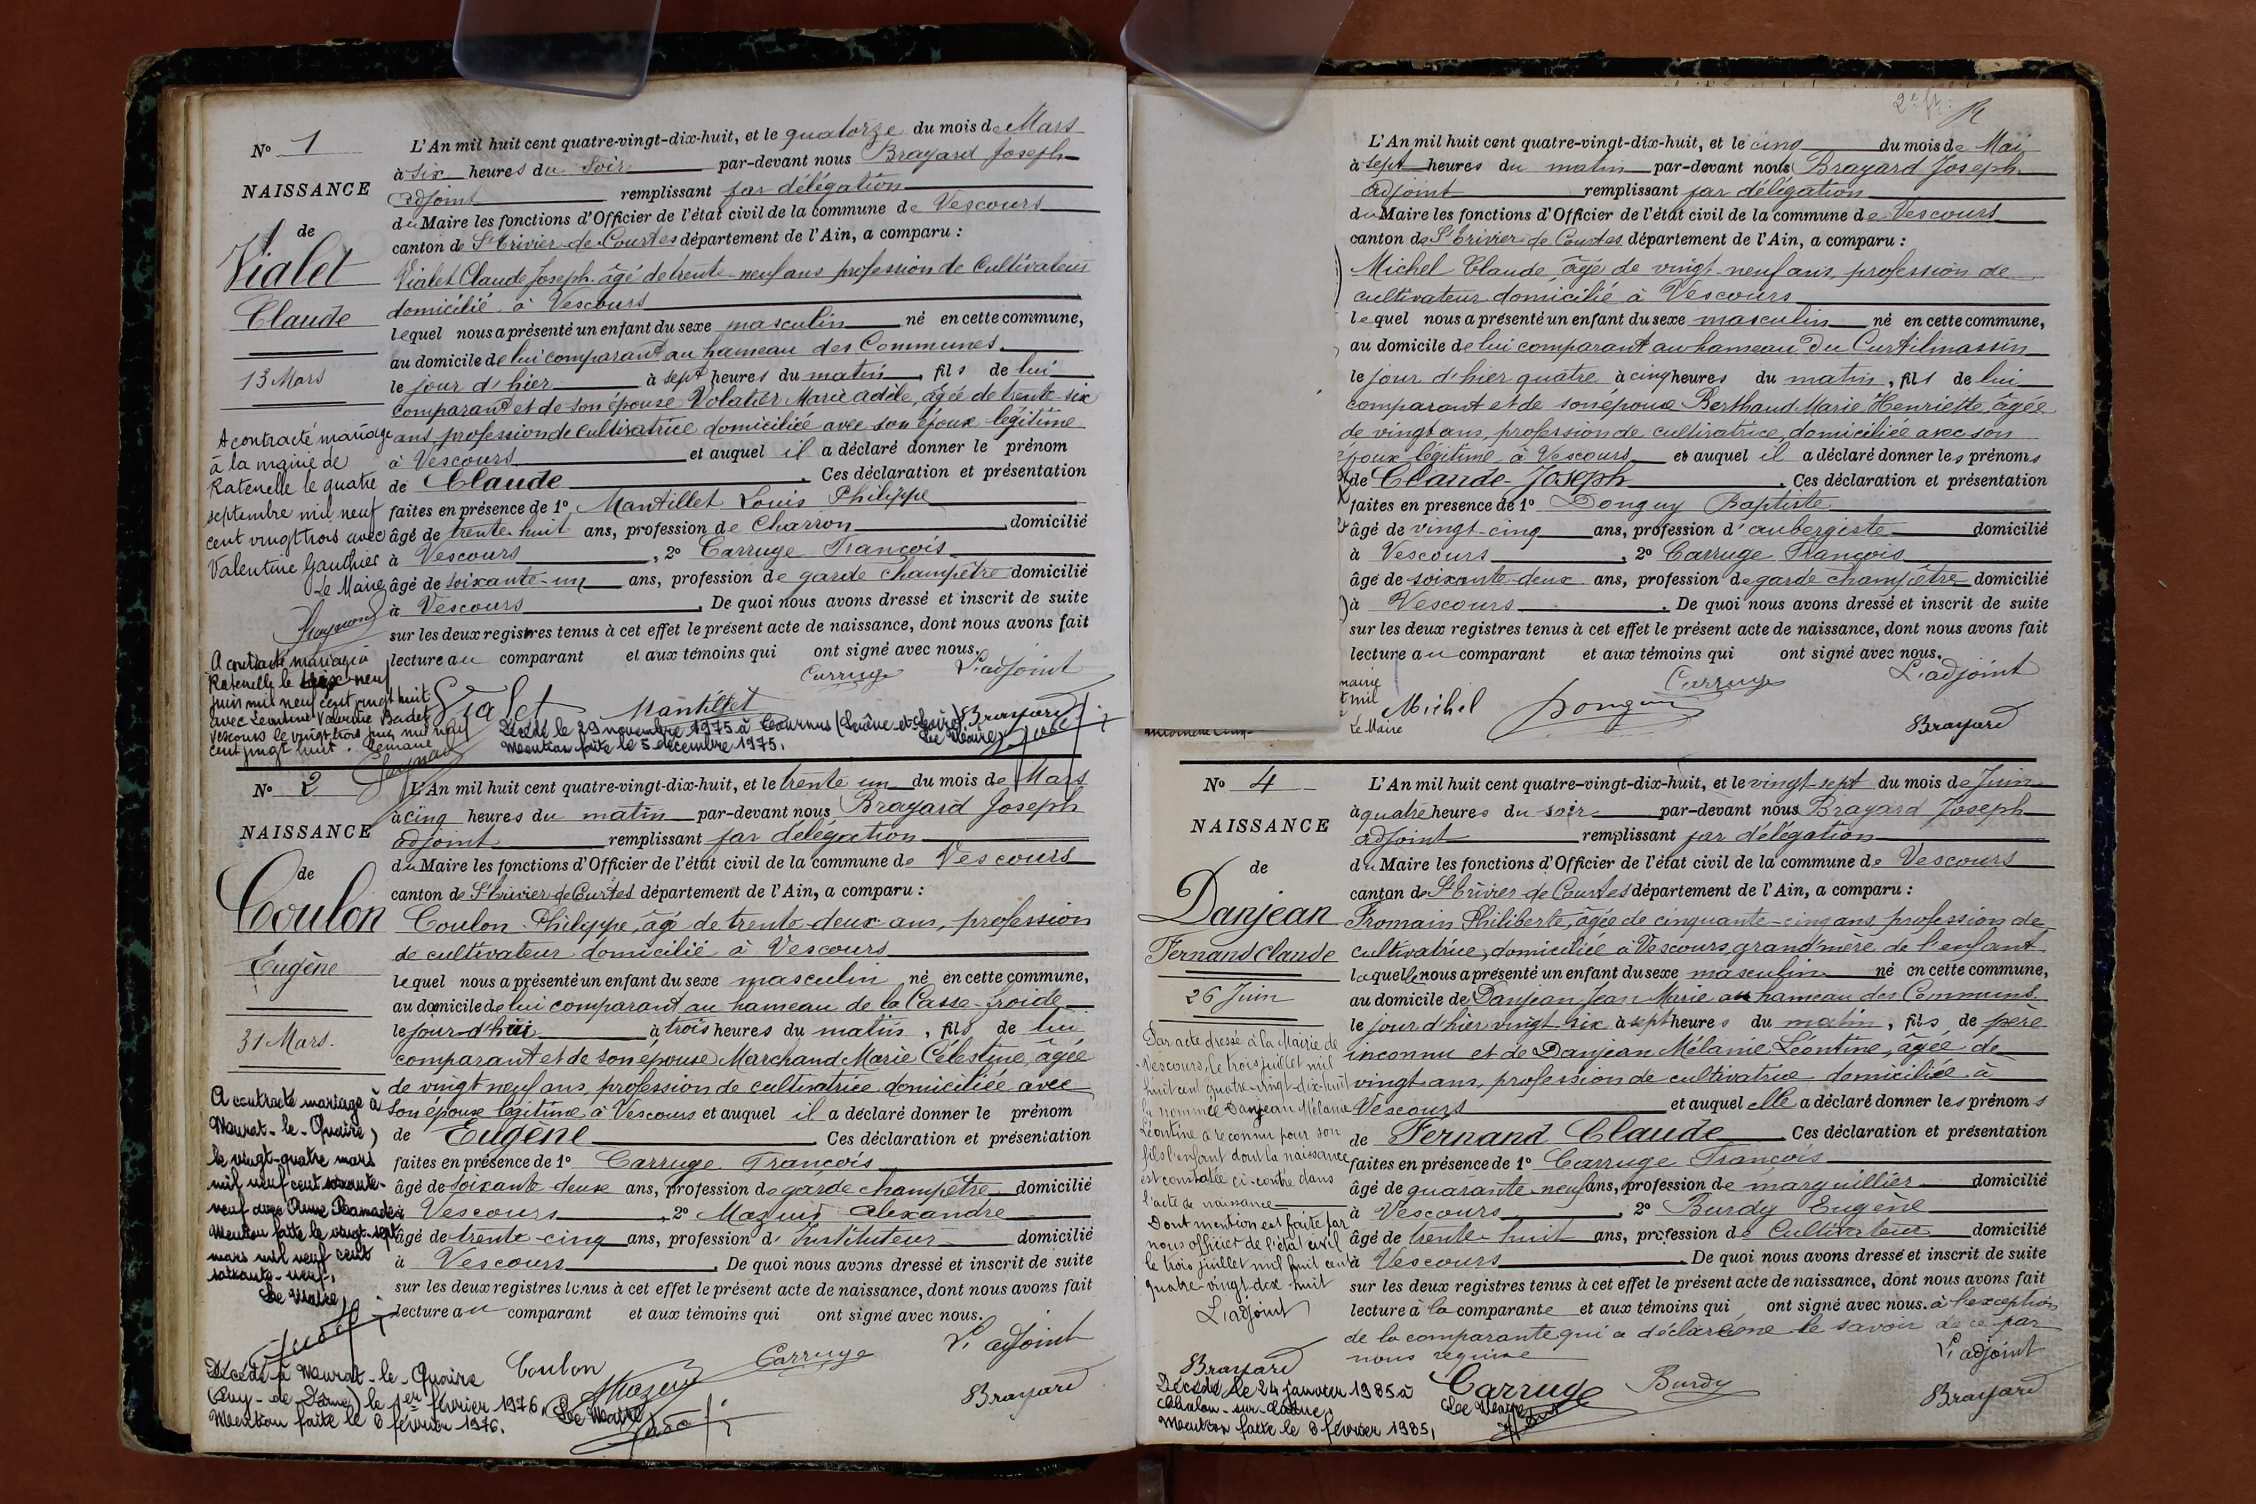 N° 1
NAISSANCE
de
Vialet
Claude
13 Mars
A contracté mariage
à la mairie de
Ratenelle le quatre
septembre mil neuf
cent vingt trois avec
Valentine Gauthier
Le Maire
A contracté mariage à
Ratenelle le neuf
juin mil neuf cent vingt huit
avec Léontine Valérine Badet
Vescours le vingt trois juin mil neuf
cent vingt huit.
L'An mil huit cent quatre-vingt-dix-huit, et le quatorze du mois de Mars
à six heures du soir par-devant nous Brayard Joseph
adjoint remplissant par délégation
du Maire les fonctions d'Officier de l'état civil de la commune de Vescours
canton de St Trivier-de-Courtes département de l'Ain, a comparu :
Vialet Claude Joseph âgé de trente-neuf ans profession de Cultivateur
domicilié à Vescours
lequel nous a présenté un enfant du sexe masculin né en cette commune,
au domicile de lui comparant au hameau des Communes
le jour d'hier à sept heures du matin, fils de lui
comparant et de son épouse Volatier Marie Adèle, âgée de trente-six
ans, profession de cultivatrice domiciliée avec son époux légitime
à Vescours et auquel il a déclaré donner le prénom
de Claude. Ces déclaration et présentation
faites en présence de 1° Mantillet Louis Philippe
âgé de trente-huit ans, profession de Charron, domicilié
à Vescours, 2° Carruge François
âgé de soixante-un ans, profession de garde champêtre domicilié
à Vescours. De quoi nous avons dressé et inscrit de suite
sur les deux registres tenus à cet effet le présent acte de naissance, dont nous avons fait
lecture au comparant et aux témoins qui ont signé avec nous.
Carruge L'adjoint
Vialet Mantillet Brayard
Décédé le 29 novembre 1975 à Tournus (Saône-et-Loire)
Mention faite le 5 décembre 1975. Le Maire,
N° 2
NAISSANCE
de
Coulon
Eugène
31 Mars.
A contracté mariage à
Murat-le-Quaire,
le vingt-quatre mars
mil neuf cent soixante-
neuf avec
Mention faite le vingt-sept
mars mil neuf cent
soixante-neuf,
Le Maire,
L'An mil huit cent quatre-vingt-dix-huit, et le trente un du mois de Mars
à cinq heures du matin par-devant nous Brayard Joseph
adjoint remplissant par délégation
du Maire les fonctions d'Officier de l'état civil de la commune de Vescours
canton de St Trivier-de-Courtes département de l'Ain, a comparu :
Coulon Philippe, âgé de trente-deux ans, profession
de cultivateur domicilié à Vescours
lequel nous a présenté un enfant du sexe masculin né en cette commune,
au domicile de lui comparant au hameau de la Casse-froide
le jour d'hui à trois heures du matin, fils de lui
comparant et de son épouse Marchand Marie Célestine, âgée
de vingt neuf ans, profession de cultivatrice domiciliée avec
son épouse légitime à Vescours et auquel il a déclaré donner le prénom
de Eugène. Ces déclaration et présentation
faites en présence de 1° Carruge François
âgé de soixante deux ans, profession de garde champêtre domicilié
à Vescours, 2° Mazuir Alexandre
âgé de trente-cinq ans, profession d'Instituteur domicilié
à Vescours. De quoi nous avons dressé et inscrit de suite
sur les deux registres tenus à cet effet le présent acte de naissance, dont nous avons fait
lecture au comparant et aux témoins qui ont signé avec nous.
Coulon Carruge L'adjoint
Brayard
Décédé à Murat-le-Quaire
(Puy-de-Dôme) le 1er février 1976.
Mention faite le 6 février 1976. Le Maire
2e ft.
L'An mil huit cent quatre-vingt-dix-huit, et le cinq du mois de Mai
à sept heures du matin par-devant nous Brayard Joseph
adjoint remplissant par délégation
du Maire les fonctions d'Officier de l'état civil de la commune de Vescours
canton de St Trivier-de-Courtes département de l'Ain, a comparu :
Michel Claude âgé de vingt-neuf ans, profession de
cultivateur domicilié à Vescours
lequel nous a présenté un enfant du sexe masculin né en cette commune,
au domicile de lui comparant au hameau du Curtilmassin
le jour d'hier quatre à cinq heures du matin, fils de lui
comparant et de son épouse Berthaud Marie Henriette, âgée
de vingt ans, profession de cultivatrice, domiciliée avec son
époux légitime à Vescours et auquel il a déclaré donner les prénoms
de Claude-Joseph. Ces déclaration et présentation
faites en presence de 1° Donguy Baptiste
âgé de vingt-cinq ans, profession d'aubergiste domicilié
à Vescours, 2° Carruge François
âgé de soixante-deux ans, profession de garde champêtre domicilié
à Vescours. De quoi nous avons dressé et inscrit de suite
sur les deux registres tenus à cet effet le présent acte de naissance, dont nous avons fait
lecture au comparant et aux témoins qui ont signé avec nous.
mairie
mil
Le Maire
Michel Donguy Carruge L'adjoint
Brayard
N° 4
NAISSANCE
de
Danjean
Fernand Claude
26 Juin
Par acte dressé à la Mairie de
Vescours, le trois juillet mil
huit cent quatre-vingt-dix-huit
la nommée Danjean Mélanie
Léontine a reconnu pour son
fils l'enfant dont la naissance
est constatée ci-contre dans
l'acte de naissance
Dont mention est faite par
nous officier de l'état civil
le trois juillet mil huit cent
quatre-vingt-dix huit
L'adjoint
Brayard
L'An mil huit cent quatre-vingt-dix-huit, et le vingt-sept du mois de Juin
à quatre heures du soir par-devant nous Brayard Joseph
adjoint remplissant par délégation
du Maire les fonctions d'Officier de l'état civil de la commune de Vescours
canton de St Trivier-de-Courtes département de l'Ain, a comparu :
Fromain Philiberte, âgée de cinquante-cinq ans, profession de
cultivatrice, domiciliée à Vescours, grand'mère de l'enfant
laquelle nous a présenté un enfant du sexe masculin né en cette commune,
au domicile de Danjean Jean Marie au hameau des Communs
le jour d'hier vingt-six à sept heures du matin, fils de père
inconnu et de Danjean Mélanie Léontine, âgée de
vingt ans, profession de cultivatrice domiciliée à
Vescours et auquel elle a déclaré donner les prénoms
de Fernand Claude. Ces déclaration et présentation
faites en présence de 1° Carruge François
âgé de quarante-neuf ans, profession de marguillier domicilié
à Vescours, 2° Burdy Eugène
âgé de trente huit ans, profession de Cultivateur domicilié
à Vescours. De quoi nous avons dressé et inscrit de suite
sur les deux registres tenus à cet effet le présent acte de naissance, dont nous avons fait
lecture à la comparante et aux témoins qui ont signé avec nous. à l'exception
de la comparante qui a déclaré ne le savoir de ce par
nous requise
L'adjoint
Carruge Burdy Brayard
Décédé le 24 janvier 1985 à
Chalon-sur-Saône.
Mention faite le 8 février 1985,
Le Maire,